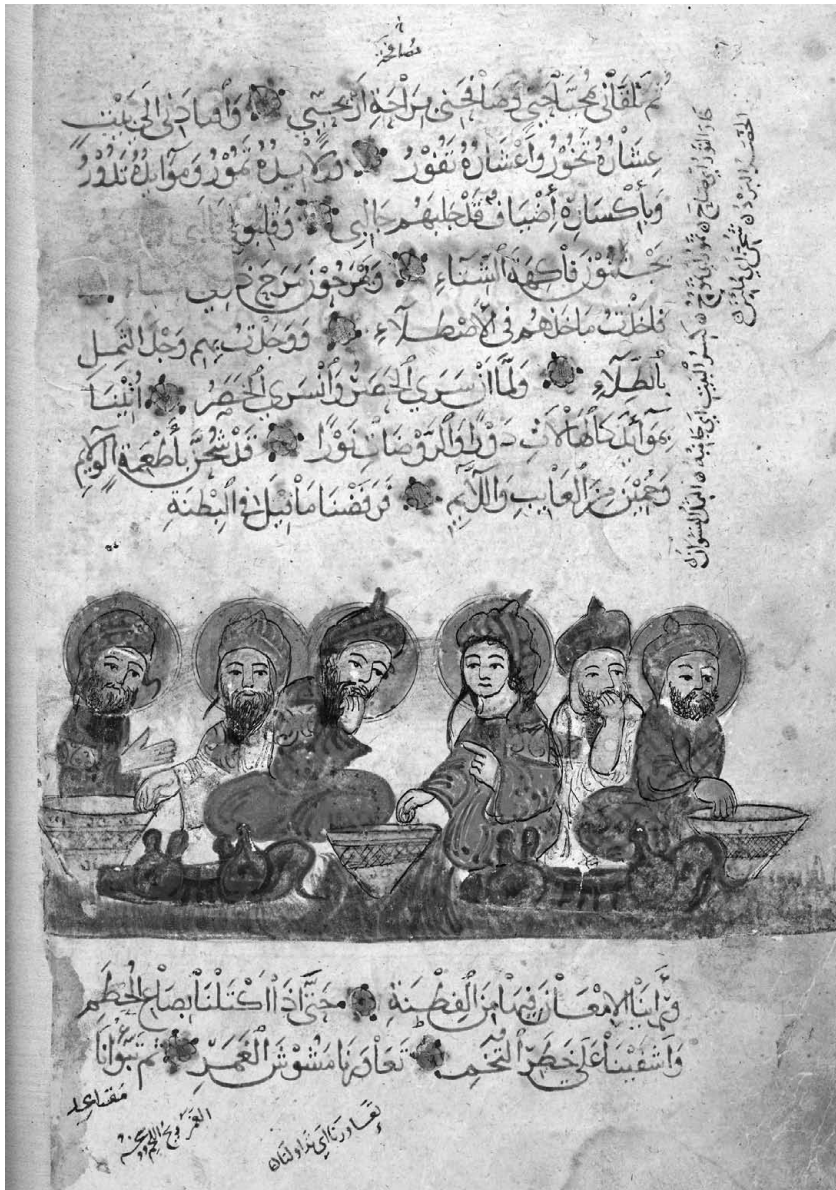 ثُمَّ تَلَقَّانِي بِمُحَيَّا حَيِيٍّ وَصَافَحَنِي بِرَاحَةِ أَرْيَحِيٍّ وَاقْتَادَنِي إِلَى بَيْتٍ
عِشَارُهُ تَخُورُ وَأَعْشَارُهُ تَفُورُ وَوَلَائِدُهُ تَمُورُ وَمَوَائِدُهُ تَدُورُ
وَبِأَكْسَارِهِ أَضْيَافٌ قَدْ جَلَبَهُمْ جَالِبِي وَقُلِّبُوا فِي قَالَبِي
يَجْتَنُونَ فَاكِهَةَ الشِّتَاءِ وَيَمْرَحُونَ مَرَحَ ذَوِي
فَأَخَذْتُ مَأْخَذَهُمْ فِي الْاِصْطِلَاءِ وَوَجَدْتُ بِهِمْ وَجْدَ الثَّمِلِ
بِالطِّلَاءِ وَلَمَّا أَنْ سَرَى الْحَصَرُ وَانْسَرَى الْخَصَرُ أُتِينَا
بِمَوَائِدَ كَالْهَالَاتِ دَوْرًا وَالرَّوْضَاتِ نَوْرًا قَدْ شُحِنَّ بِأَطْعِمَةِ الْوَلَائِمِ
وَحُمِينَ مِنَ الْعَايِبِ وَاللَّائِمِ فَرَفَضْنَا مَا قِيلَ فِي الْبِطْنَةِ
وَرَأَيْنَا الْإِمْعَانَ فِيهَا مِنَ الْفِطْنَةِ حَتَّى إِذَا اكْتَلْنَا بِصَاعِ الْحُطَمِ
وَأَشْفَيْنَا عَلَى خَطَرِ التُّخَمِ تَعَاوَرْنَا مَشُوشَ الْغَمَرِ ثُمَّ تَبَوَّأْنَا
مقاعد
تعاورنا اي تداولنا